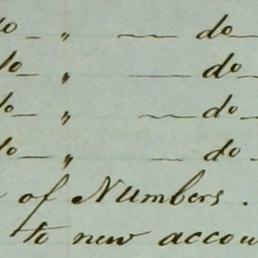 do — „ — do —
do — „ — do —
do — „ — do —
do — „ — do —
of Numbers.
to new accou